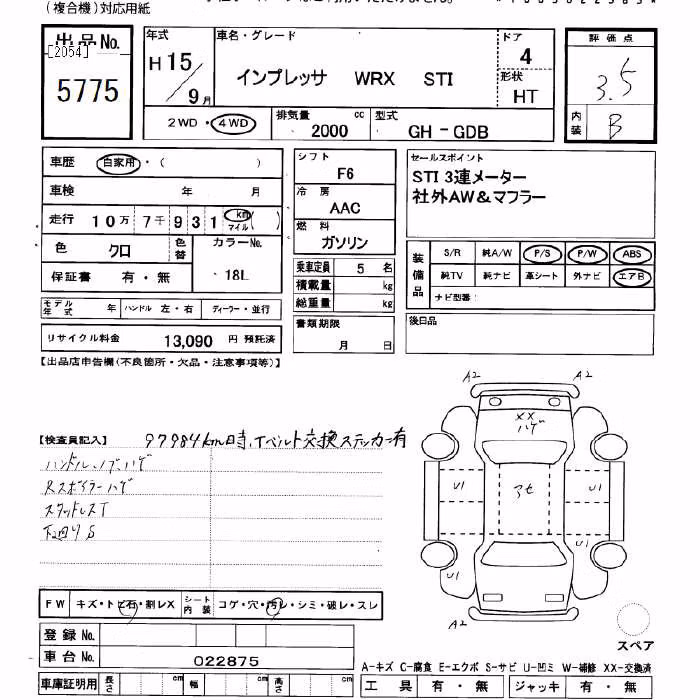 (複合機)対応用紙
出品No.
[2054]
5775
年式
H15/9月
車名・グレード
インプレッサ WRX STI
ドア
4
形状
HT
評価点
3.5
内装
B
2WD・4WD
排気量
2000 cc
型式
GH-GDB
車歴 自家用・( )
車検 年 月
走行 10万 7千 931 km マイル ( )
色 クロ
色替
カラーNo.
18L
保証書 有・無
モデル年式 年 ハンドル 左・右 ディーラー・並行
リサイクル料金 13,090 円 預託済
シフト
F6
冷房
AAC
燃料
ガソリン
乗車定員 5 名
積載量 kg
総重量 kg
書類期限
月 日
セールスポイント
STI 3連メーター
社外AW&マフラー
装備品
S/R 純A/W P/S P/W ABS
純TV 純ナビ 革シート 外ナビ エアB
ナビ型番:
後日品
【出品店申告欄(不良箇所・欠品・注意事項等)】
【検査員記入】 97984km時、T.ベルト交換ステッカー有
ハンドル、ノブハゲ
Rスポイラーハゲ
スタッドレスT
下回りS
A2 A2
XX
ハゲ
U1 アセ U1
U1 U1
A2
スペア
FW キズ・トビ石・割レX シート内装 コゲ・穴・汚レ・シミ・破レ・スレ
登録No.
車台No. 022875
車庫証明用 長さ cm 幅 cm 高さ cm
A-キズ C-腐食 E-エクボ S-サビ U-凹ミ W-補修 XX-交換済
工具 有・無 ジャッキ 有・無